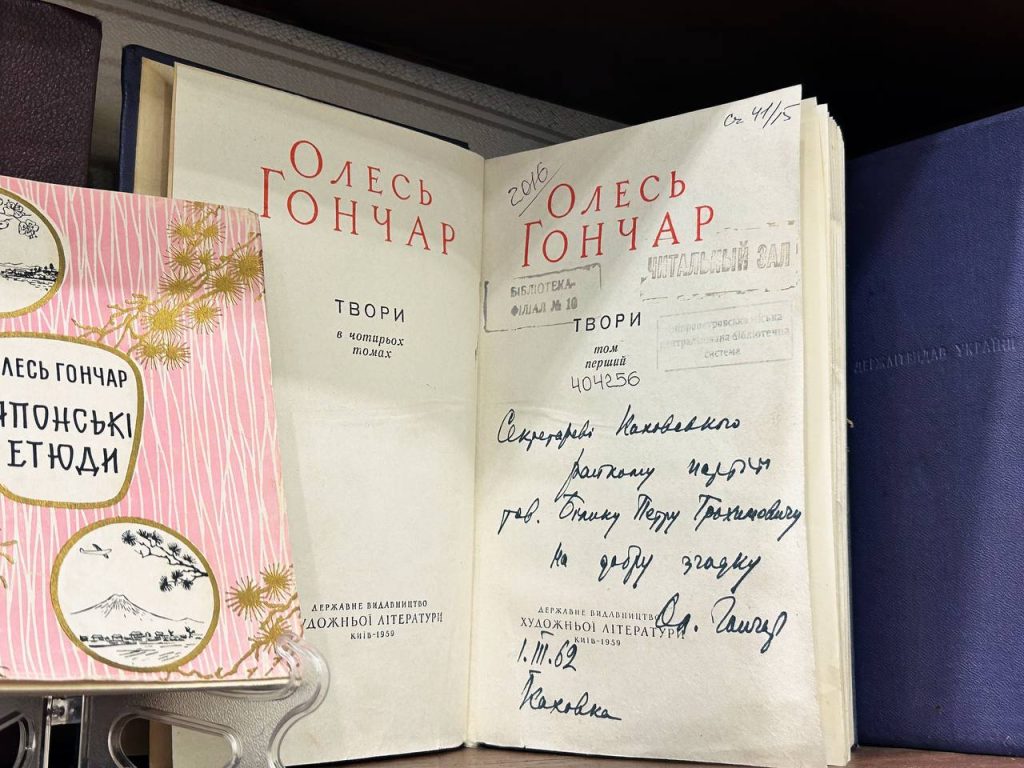 ОЛЕСЬ ГОНЧАР
ЯПОНСЬКІ
ЕТЮДИ
ОЛЕСЬ
ГОНЧАР
ТВОРИ
в чотирьох
томах
ДЕРЖАВНЕ ВИДАВНИЦТВО
ХУДОЖНЬОЇ ЛІТЕРАТУРИ
КИЇВ-1959
Сг 41/15
2016
ОЛЕСЬ
ГОНЧАР
ЧИТАЛЬНЫЙ ЗАЛ
БІБЛІОТЕКА-
ФІЛІАЛ № 10
ТВОРИ
том
перший
404256
Дніпропетровська міська
централізована бібліотечна
система
Секретареві Каховського
райкому партії
тов. Білику Петру Трохимовичу
на добру згадку
Ол. Гончар
ДЕРЖАВНЕ ВИДАВНИЦТВО
ХУДОЖНЬОЇ ЛІТЕРАТУРИ
КИЇВ-1959
1.III.62
Каховка
ДЕРЖЛІТВИДАВ УКРАЇНИ